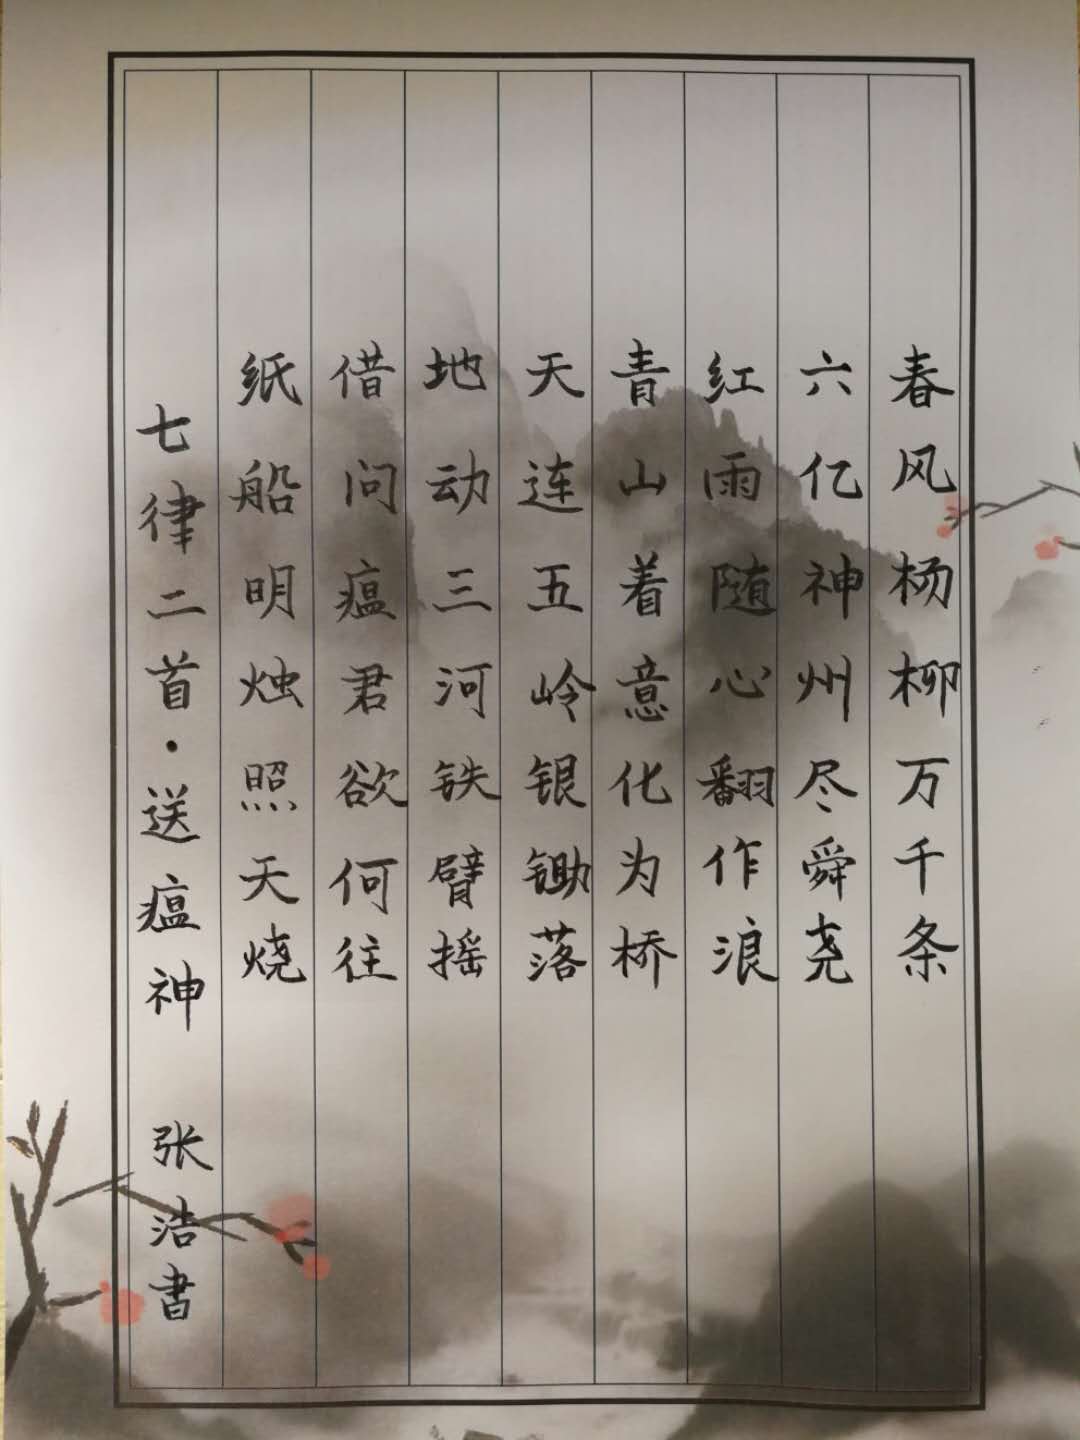 春风杨柳万千条
六亿神州尽舜尧
红雨随心翻作浪
青山着意化为桥
天连五岭银锄落
地动三河铁臂摇
借问瘟君欲何往
纸船明烛照天烧
七律二首·送瘟神 张洁书